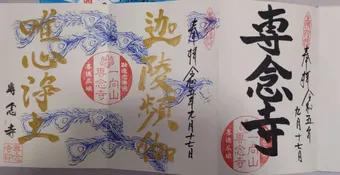 奉拝 令和五年
九月十七日
専念寺
奉拝 令和五年九月十七日
迦陵頻伽
一向山
専念寺
唯心浄土
専念寺